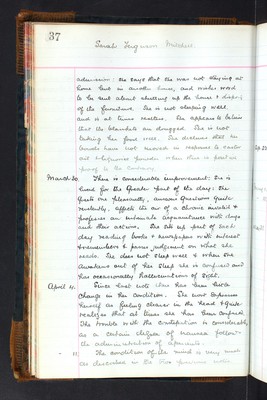 37
Sarah Ferguson Mitchell
admission. She says that she was not staying at
home but in another house, and under word
to be sent about shutting up the house & dispos
of the furniture. She is not sleeping well,
and is at times restless. She appears to believe
that the blankets are drugged. She is not
taking her food well. She declares that her
bowels have not moved in response to castor
oil & liquorice powder when there is positive
proof to the contrary.
March 30. There is considerable improvement. She is
kind for the greater part of the day; she
greets one pleasantly, answers questions quite
instantly, affects the air of a chronic invalid &
professes an intimate acquaintance with drugs
and their actions. She sits up part of each
day reading books & newspapers with interest
& remembers & passes judgment on what she
reads. She does not sleep well & when she
awakens out of her sleep she is confused and
has occasionally hallucinations of sight.
April 4. Since last note there has been little
change in her condition. She now expresses
herself as feeling clearer in the head & quite
realizes that at times she has been confused.
The trouble with the constipation is considerable
as a certain degree of nausea follows
the administration of aperients.
" 11 The condition of the mind is very much
as described in the two previous notes